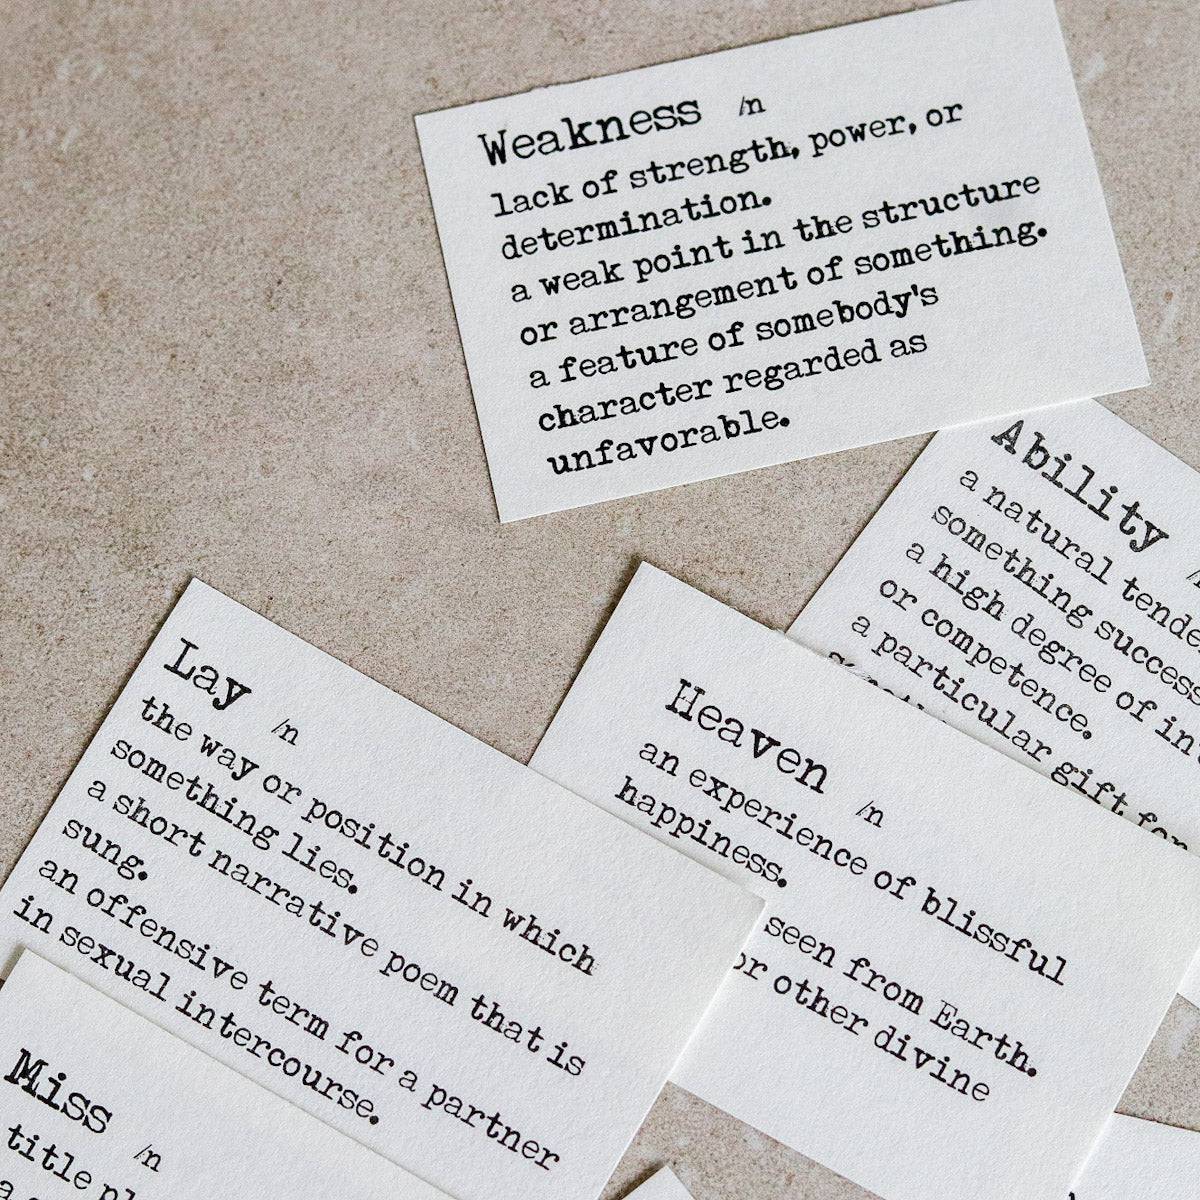 Weakness /n
lack of strength, power, or
determination.
a weak point in the structure
or arrangement of something.
a feature of somebody's
character regarded as
unfavorable.
Ability
a natural
something
a high degree of
or competence.
a particular gift for
Lay /n
the way or position in which
something lies.
a short narrative poem that is
sung.
an offensive term for a partner
in sexual intercourse.
Heaven /n
an experience of blissful
happiness.
seen from Earth.
or other divine
Miss /n
title
a